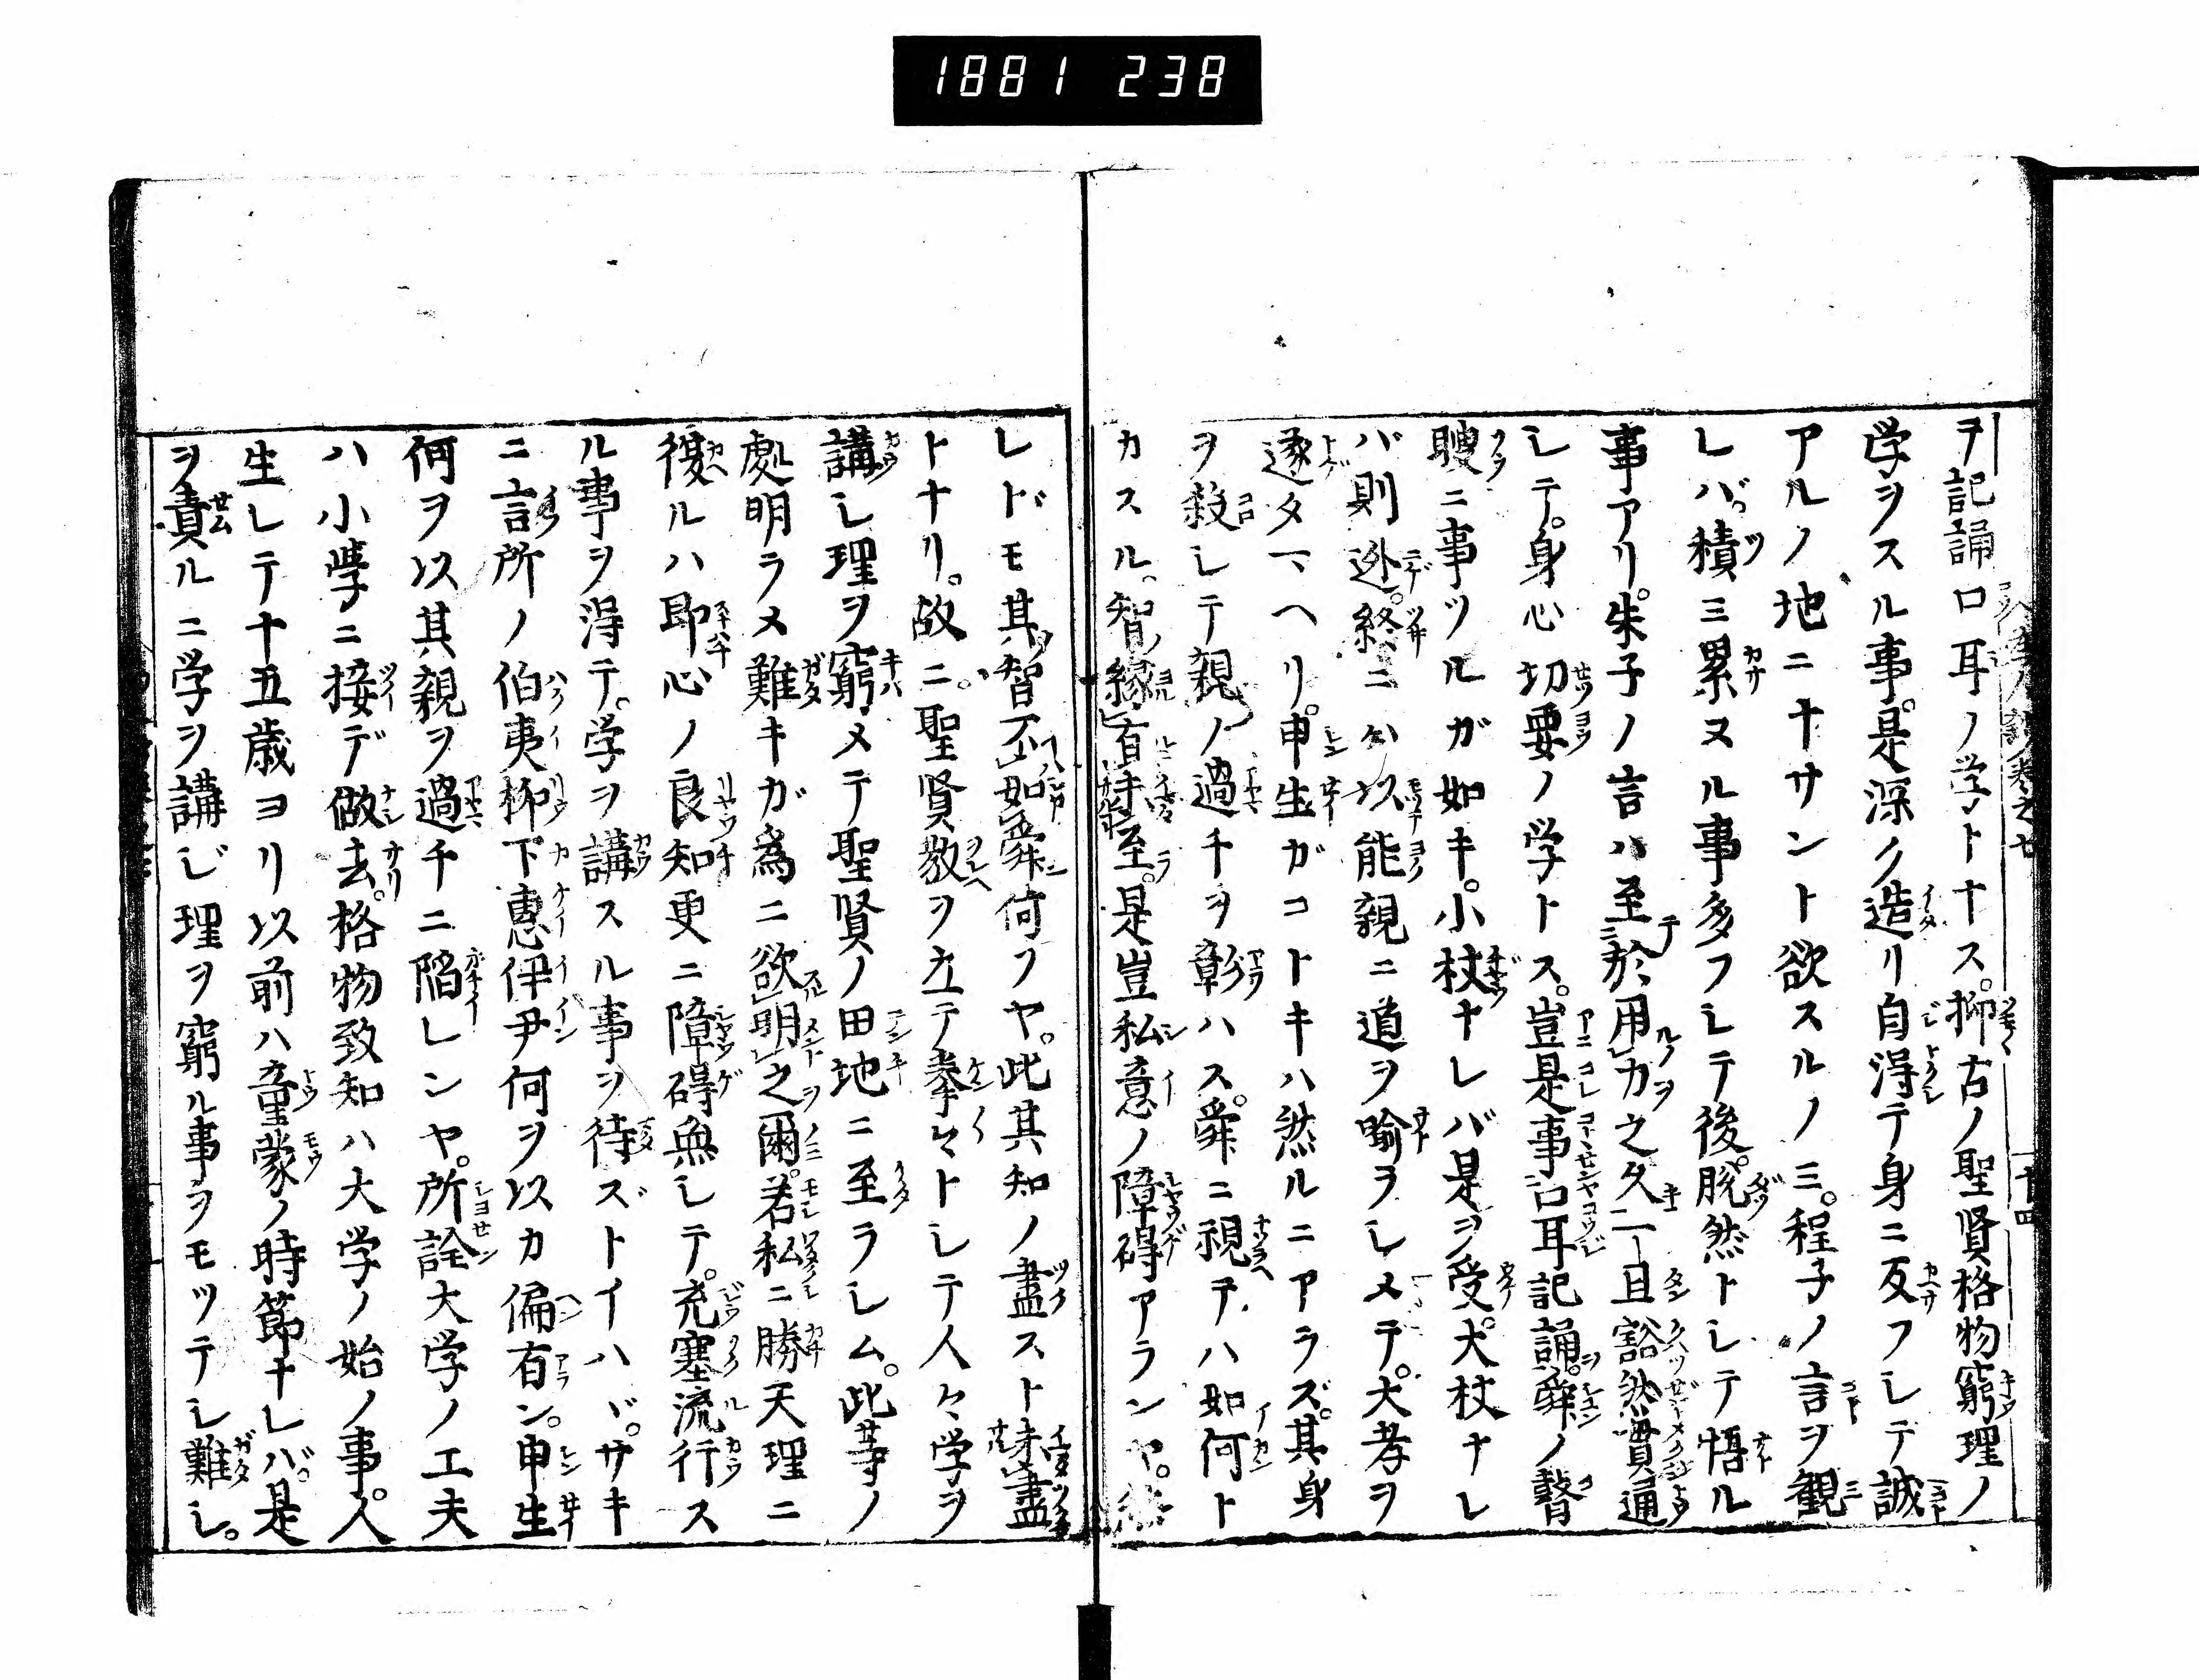 1881 238
ヲ記誦口耳ノ学トナス。抑古ノ聖賢格物窮理ノ
学ヲスル事。是深ク造リ自得テ身ニ反フシテ誠
アルノ地ニナサント欲スルノミ。程子ノ言ヲ観
レバ。積ミ累ヌル事多フシテ後。脱然トシテ悟ル
事アリ。朱子ノ言ハ至於用力之久一旦豁然貫通
シテ。身心切要ノ学トス。豈是事口耳記誦。舜ノ瞽
瞍ニ事ツルガ如キ。小杖ナレバ是ヲ受。大杖ナレ
バ則逊。終ニハ以能親ニ道ヲ喩ラシメテ。大孝ヲ
遂タマヘリ。申生ガコトキハ然ルニアラズ。其身
ヲ殺シテ親ノ過チヲ彰ハス。舜ニ視テハ如何ト
カスル。智縁直時至。是豈私意ノ障碍アランヤ。然
レドモ其智不如舜何ソヤ。此其知ノ盡スト未盡
トナリ。故ニ。聖賢教ヲ立テ拳々トシテ人々学ヲ
講シ理ヲ窮メテ聖賢ノ田地ニ至ラシム。此等ノ
處明ラメ難キガ為ニ欲明之爾。若私ニ勝天理ニ
復ルハ即心ノ良知更ニ障碍無シテ。充塞流行ス
ル事ヲ得テ。学ヲ講スル事ヲ待ズトイハヾ。サキ
ニ言所ノ伯夷柳下惠伊尹何ヲ以カ偏有ン。申生
何ヲ以其親ヲ過チニ陷レンヤ。所詮大学ノ工夫
ハ小學ニ接デ做去。格物致知ハ大学ノ始ノ事。人
生レテ十五歳ヨリ以前ハ童蒙ノ時節ナレバ。是
ヲ責ルニ学ヲ講ジ理ヲ窮ル事ヲモツテシ難シ。